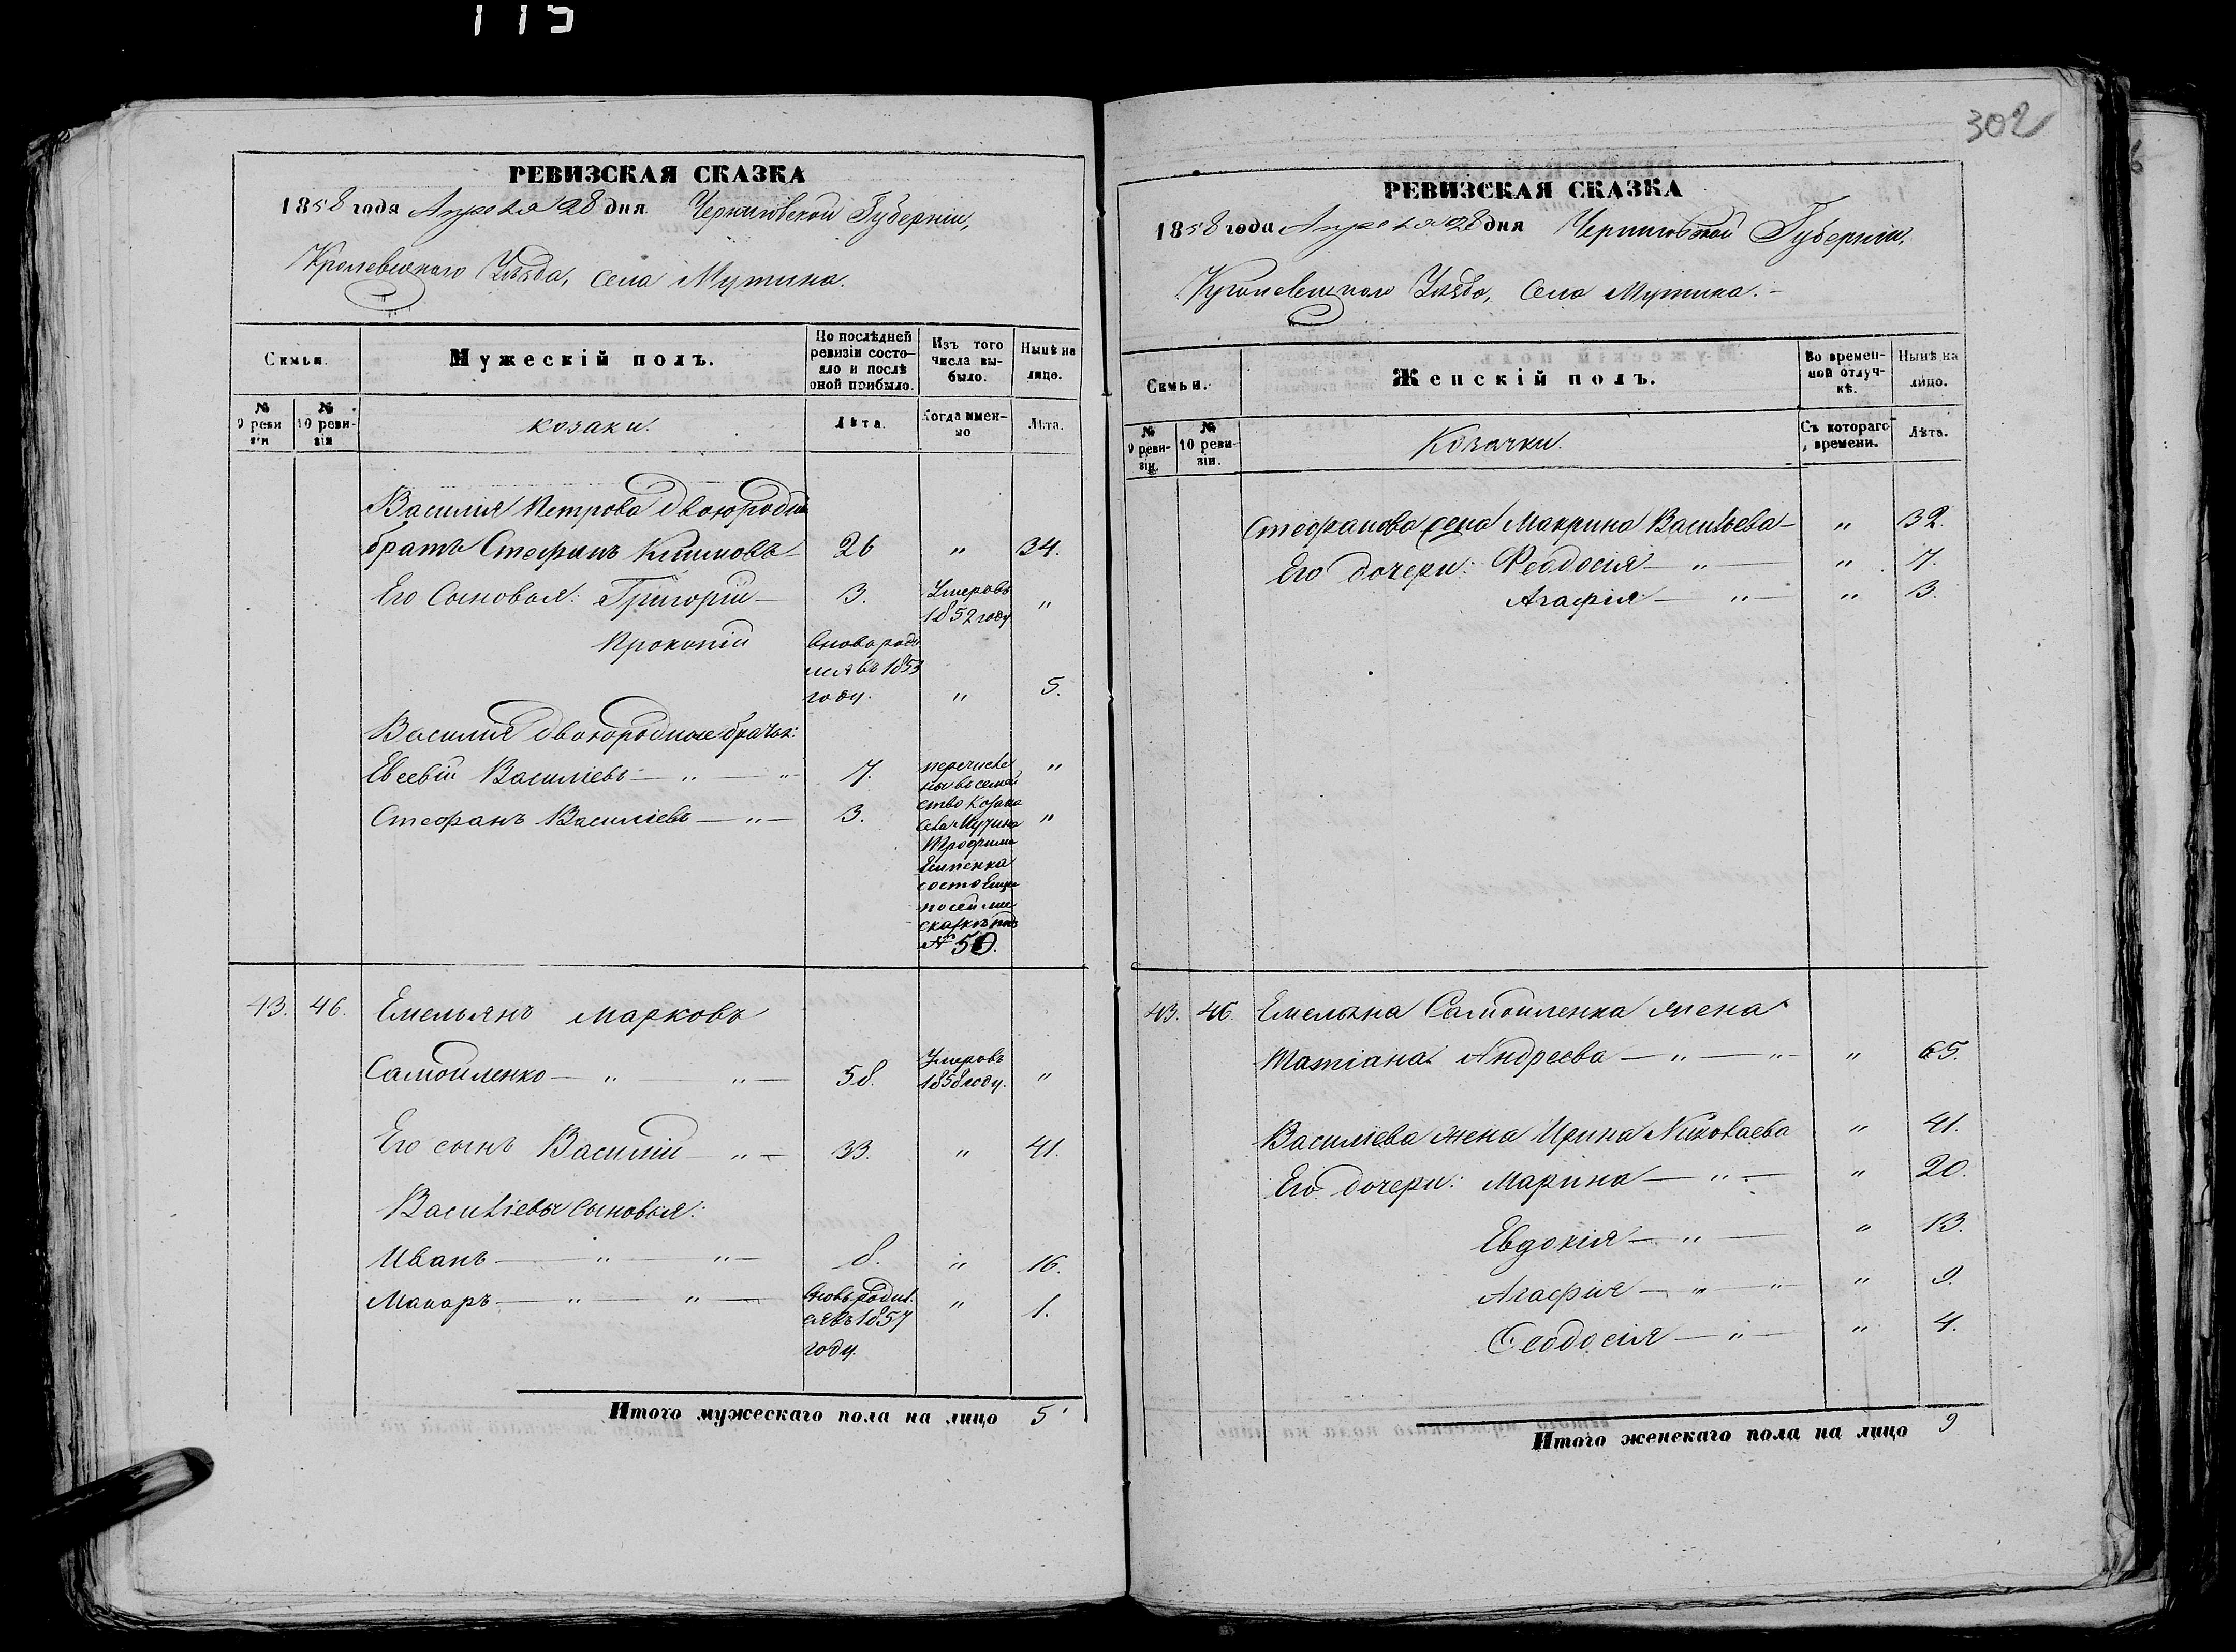 115
302
РЕВИЗСКАЯ СКАЗКА
1858 года Апреля 28 дня Черниговской Губерніи,
Кролевецкаго Уѣзда, села Мутина.
Семьи.
Мужескій полъ.
По послѣдней ревизіи состояло и послѣ оной прибыло.
Изъ того числа выбыло.
Нынѣ на лицо.
№ 9 ревизіи
№ 10 ревизіи
козаки.
Лѣта.
Когда именно
Лѣта.
Василія Петрова двоюродный
братъ Стефанъ Климовъ 26 " 34.
Его Сыновья: Григорій 3. Умеръ въ 1852 году "
Прокопій вновь родился въ 1853 году. " 5.
Василія двоюродные братья:
Евсевій Василіевъ — " — " 7. "
Стефанъ Василіевъ — " — 3. "
перечисле
ны въ семей
ство Козака
села Мутина
Трофима
состояще
по сей же
сказкѣ подъ
№ 50.
43. 46. Емельянъ Марковъ
Самойленко — " — " — 58. Умеръ въ 1858 году. "
Его сынъ Василій — " — 33. " 41.
Василіевы сыновья:
Иванъ — " — " — 8. " 16.
Макаръ — " — " — вновь родил. ся въ 1857 году. " 1.
Итого мужескаго пола на лицо 5
РЕВИЗСКАЯ СКАЗКА
1858 года Апреля 28 дня Черниговской Губерніи,
Кролевецкаго Уѣзда, Села Мутина.
Семьи.
Женскій полъ.
Во временной отлучкѣ.
Нынѣ на лицо.
№ 9 ревизіи.
№ 10 ревизіи.
Козачки.
Съ котораго времени.
Лѣта.
Стефанова жена Макрина Васильева — " 32.
Его дочери: Феодосія — " — " 7.
Агафія — " — " 3.
43. 46. Емельяна Самойленка жена
Татіана Андреева — " — " — " 65.
Василіева жена Ирина Николаева " 41.
Его дочери: Марина — " — " 20.
Евдокія — " — " 13.
Агафія — " — " " 9.
Феодосія — " — " 4.
Итого женскаго пола на лицо 9